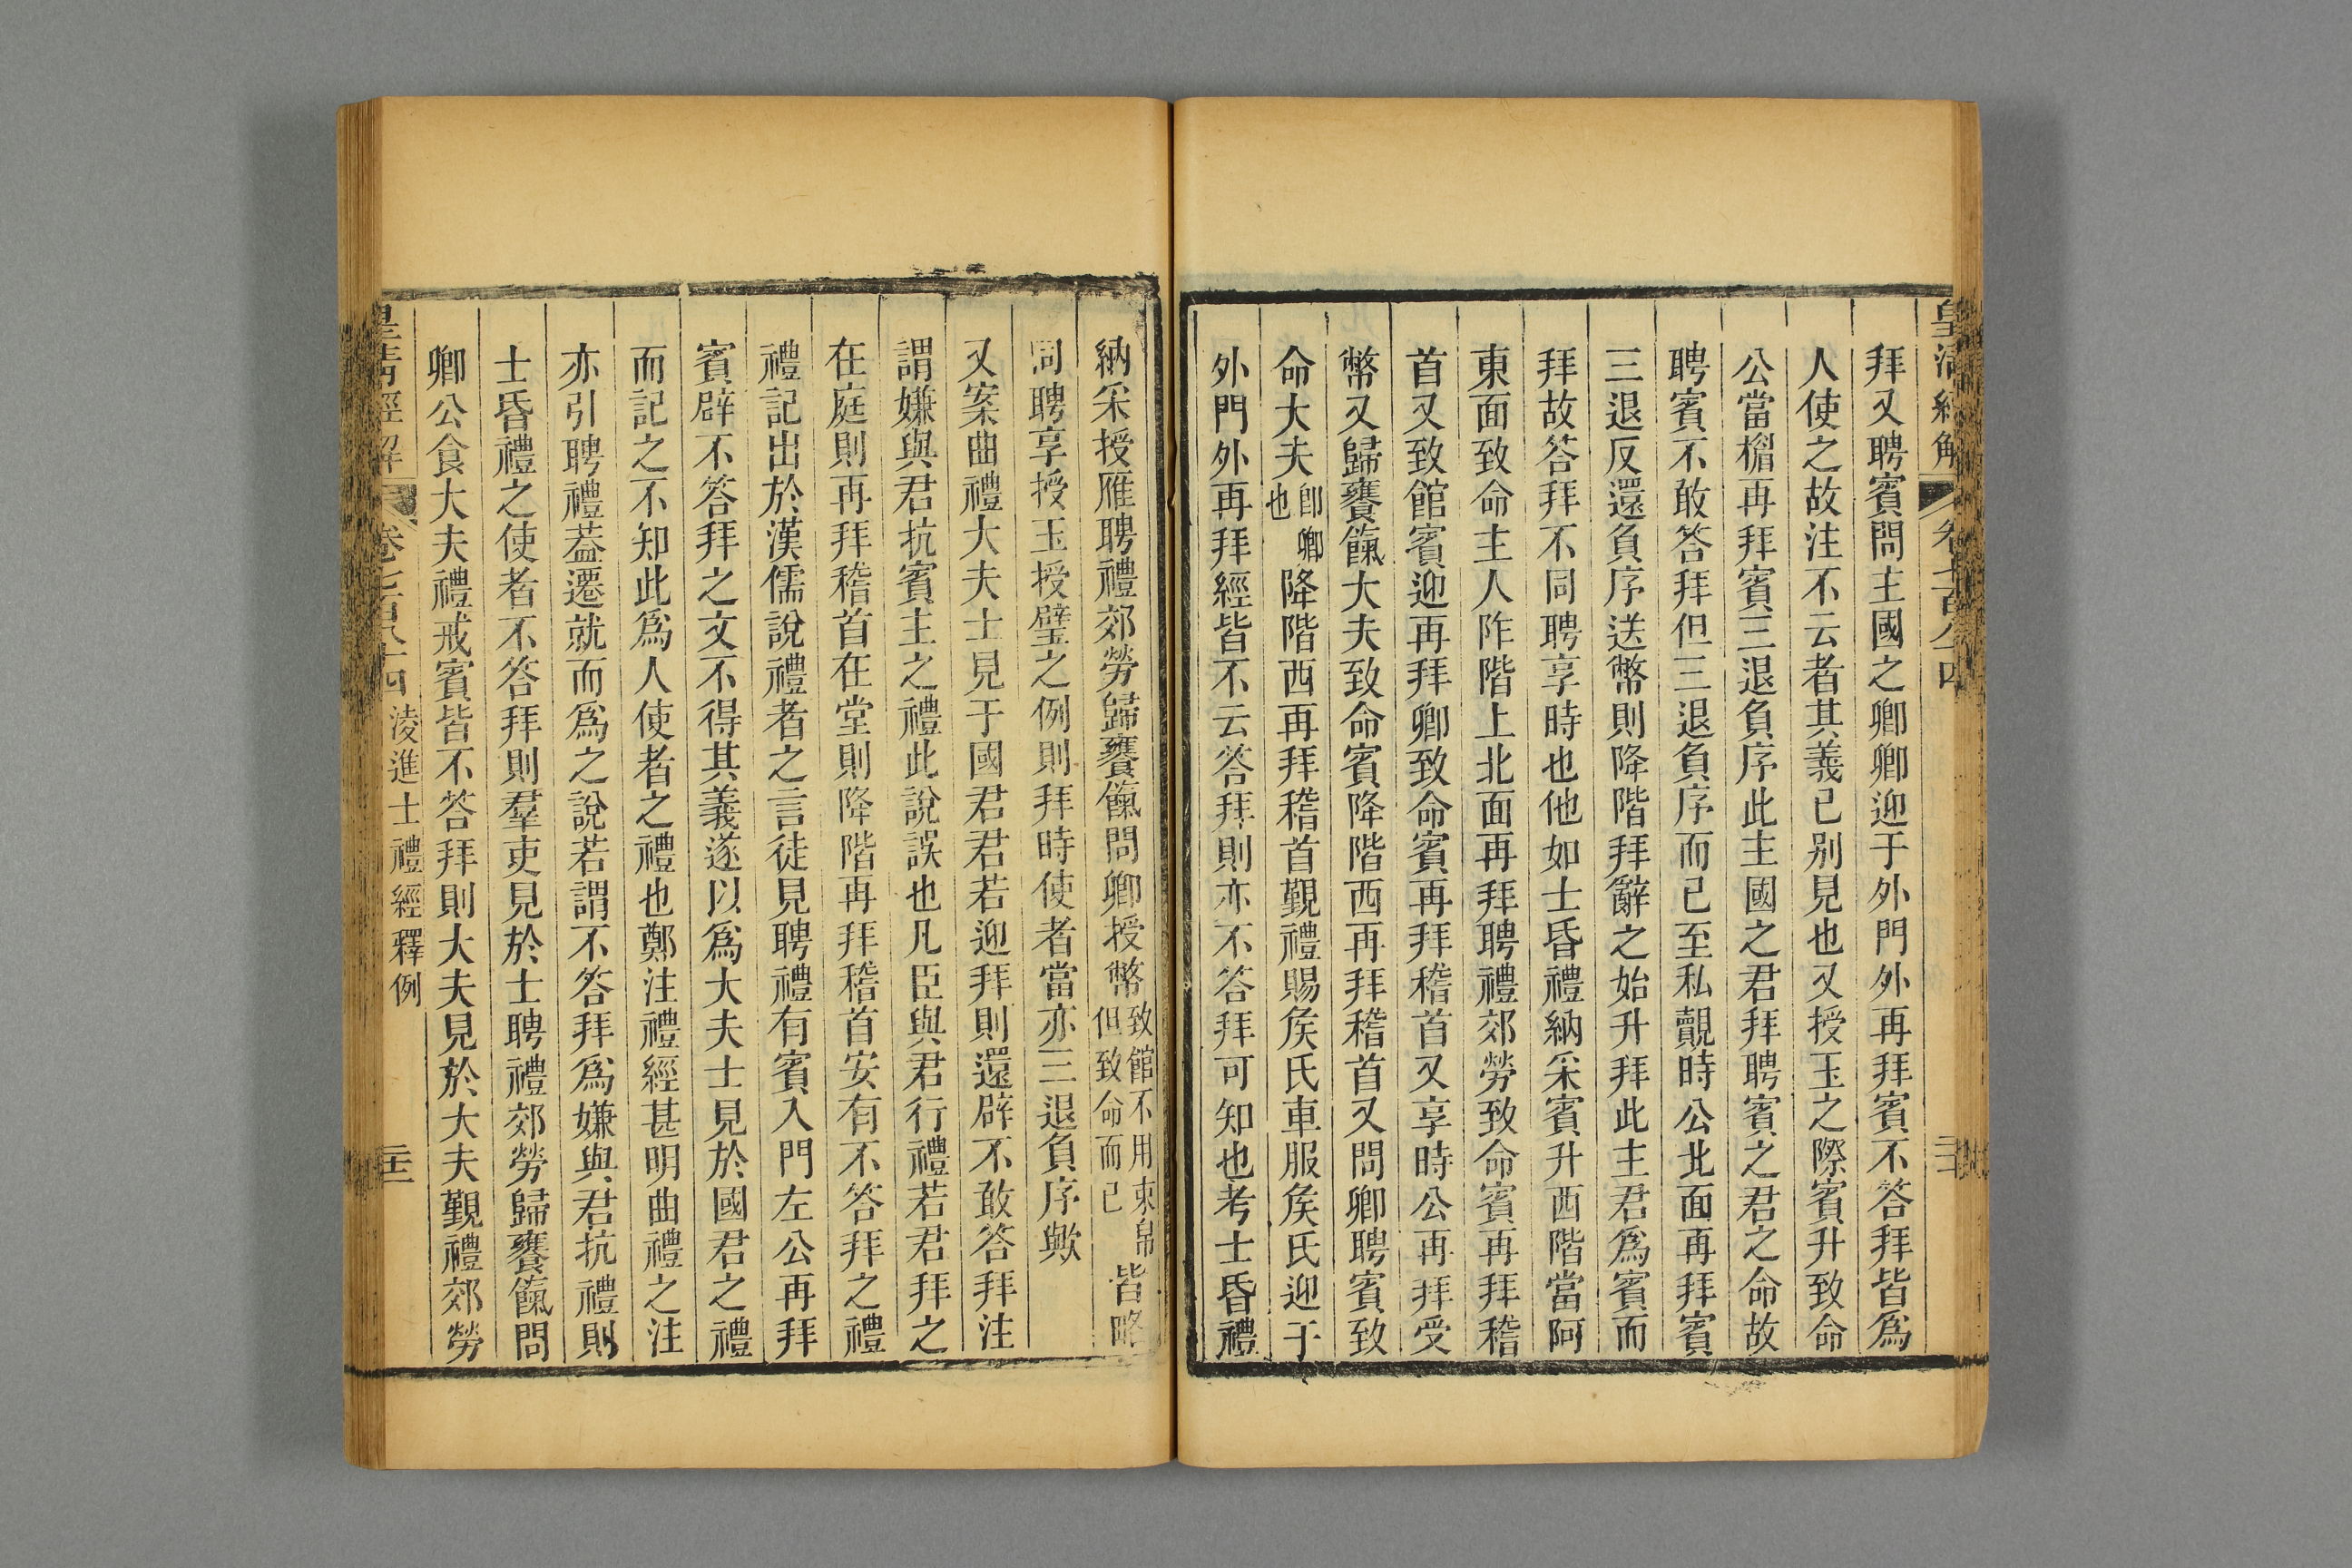 皇清經解 卷七百八十四
拜又聘賓問主國之卿卿迎于外門外再拜賓不答拜皆爲
人使之故注不云者其義已别見也又授玉之際賓升致命
公當楣再拜賓三退負序此主國之君拜聘賓之君之命故
聘賓不敢答拜但三退負序而已至私覿時公北面再拜賓
三退反還負序送幣則降階拜辭之始升拜此主君爲賓而
拜故答拜不同聘享時也他如士昏禮納采賓升西階當阿
東面致命主人阼階上北面再拜聘禮郊勞致命賓再拜稽
首又致館賓迎再拜卿致命賓再拜稽首又享時公再拜受
幣又歸饔餼大夫致命賓降階西再拜稽首又問卿聘賓致
命大夫卽卿也降階西再拜稽首覲禮賜矦氏車服矦氏迎于
外門外再拜經皆不云答拜則亦不答拜可知也考士昏禮
納采授雁聘禮郊勞歸饔餼問卿授幣致館不用束帛但致命而已皆略
同聘享授玉授璧之例則拜時使者當亦三退負序歟
又案曲禮大夫士見于國君君若迎拜則還辟不敢答拜注
謂嫌與君抗賓主之禮此說誤也凡臣與君行禮若君拜之
在庭則再拜稽首在堂則降階再拜稽首安有不答拜之禮
禮記出於漢儒說禮者之言徒見聘禮有賓入門左公再拜
賓辟不答拜之文不得其義遂以爲大夫士見於國君之禮
而記之不知此爲人使者之禮也鄭注禮經甚明曲禮之注
亦引聘禮葢遷就而爲之說若謂不答拜爲嫌與君抗禮則
士昏禮之使者不答拜則羣吏見於士聘禮郊勞歸饔餼問
卿公食大夫禮戒賓皆不答拜則大夫見於大夫覲禮郊勞
皇清經解 卷七百八十四 淩進士禮經釋例